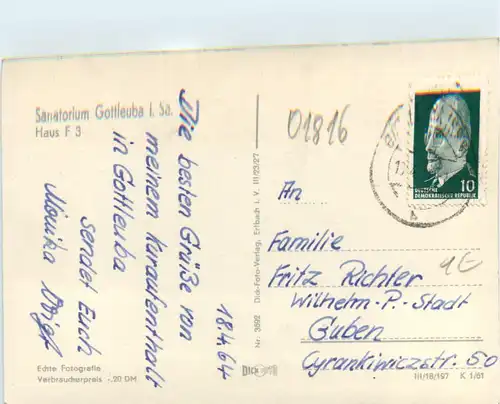 Sanatorium Gottleuba i. Sa.
Haus F 3
18.4.64
Die besten Grüße von
meinem Kuraufenthalt
in Gottleuba
sendet Euch
Monika
Echte Fotografie
Verbraucherpreis -.20 DM
Nr. 3892 Dick-Foto-Verlag, Erlbach i. V. III/23/27
DICK
01816
10
DEUTSCHE
DEMOKRATISCHE REPUBLIK
An
Familie
Fritz Richter
Wilhelm-P.-Stadt
Guben
Cyrankiwiczstr. 50
1€
III/18/197 K 1/61